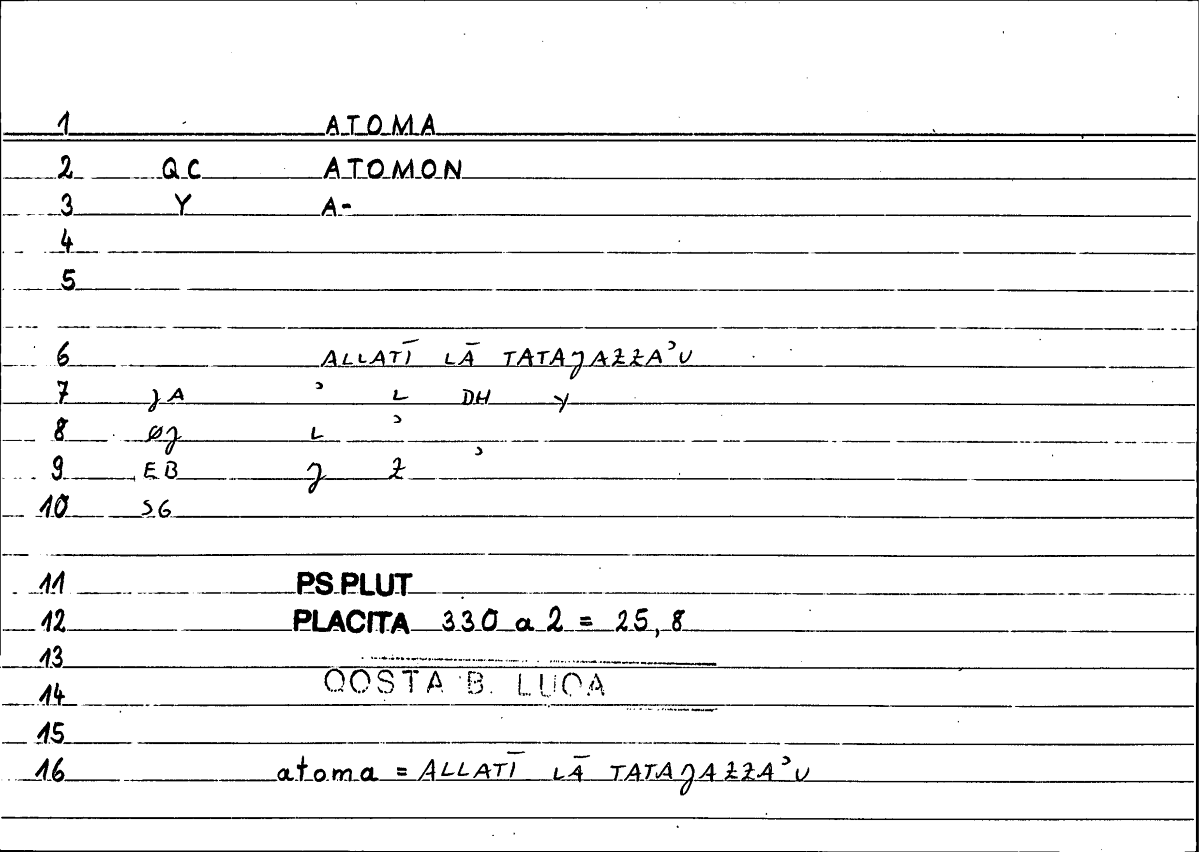 1 ATOMA
2 QC ATOMON
3 Y A-
4
5
6 ALLATĪ LĀ TATAJAZZA'U
7 JA ' L DH Y
8 ØJ L '
9 EB J Z '
10 SG
11 PS.PLUT
12 PLACITA 330 a 2 = 25,8
13
14 QOSTA B. LUQA
15
16 atoma = ALLATĪ LĀ TATAJAZZA'U